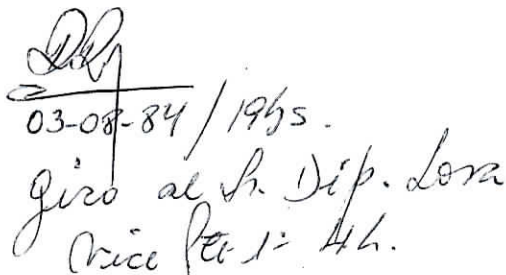 03-08-84 / 19hs.
giro al Sr. Dip. Losa
Vice Pte 1º